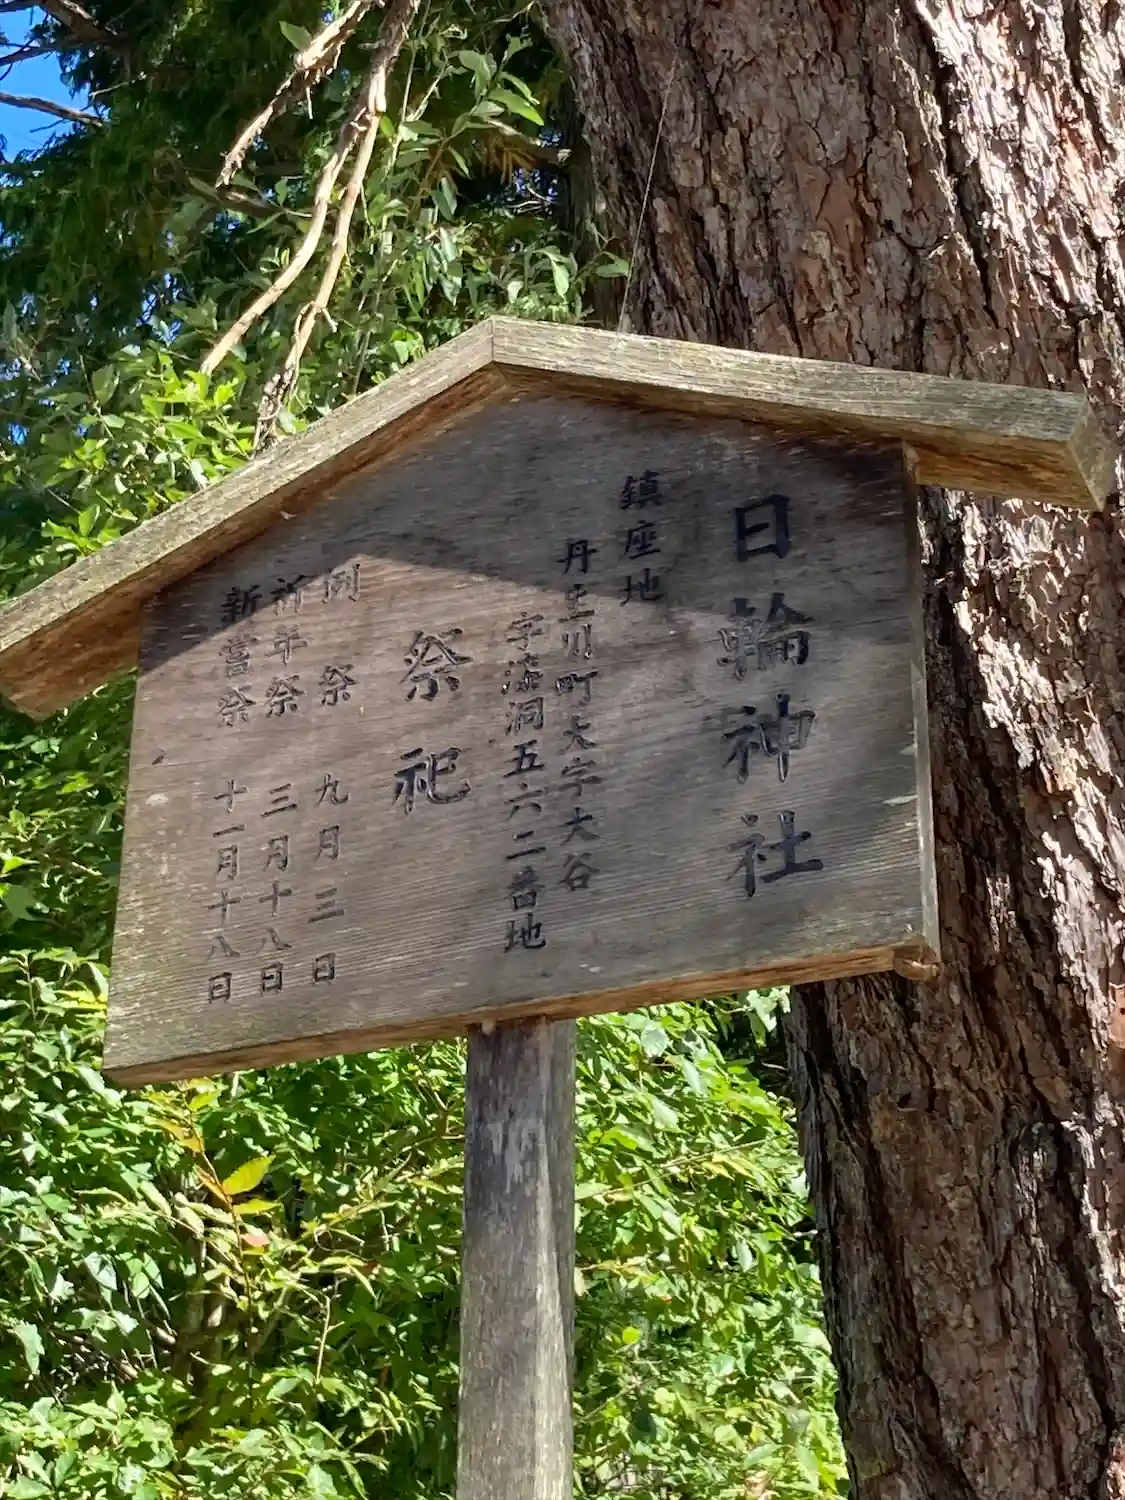 日輪神社
鎮座地
丹生川町大字大谷
字漆洞五六二番地
祭祀
例祭 九月三日
祈年祭 三月十八日
新嘗祭 十一月十八日